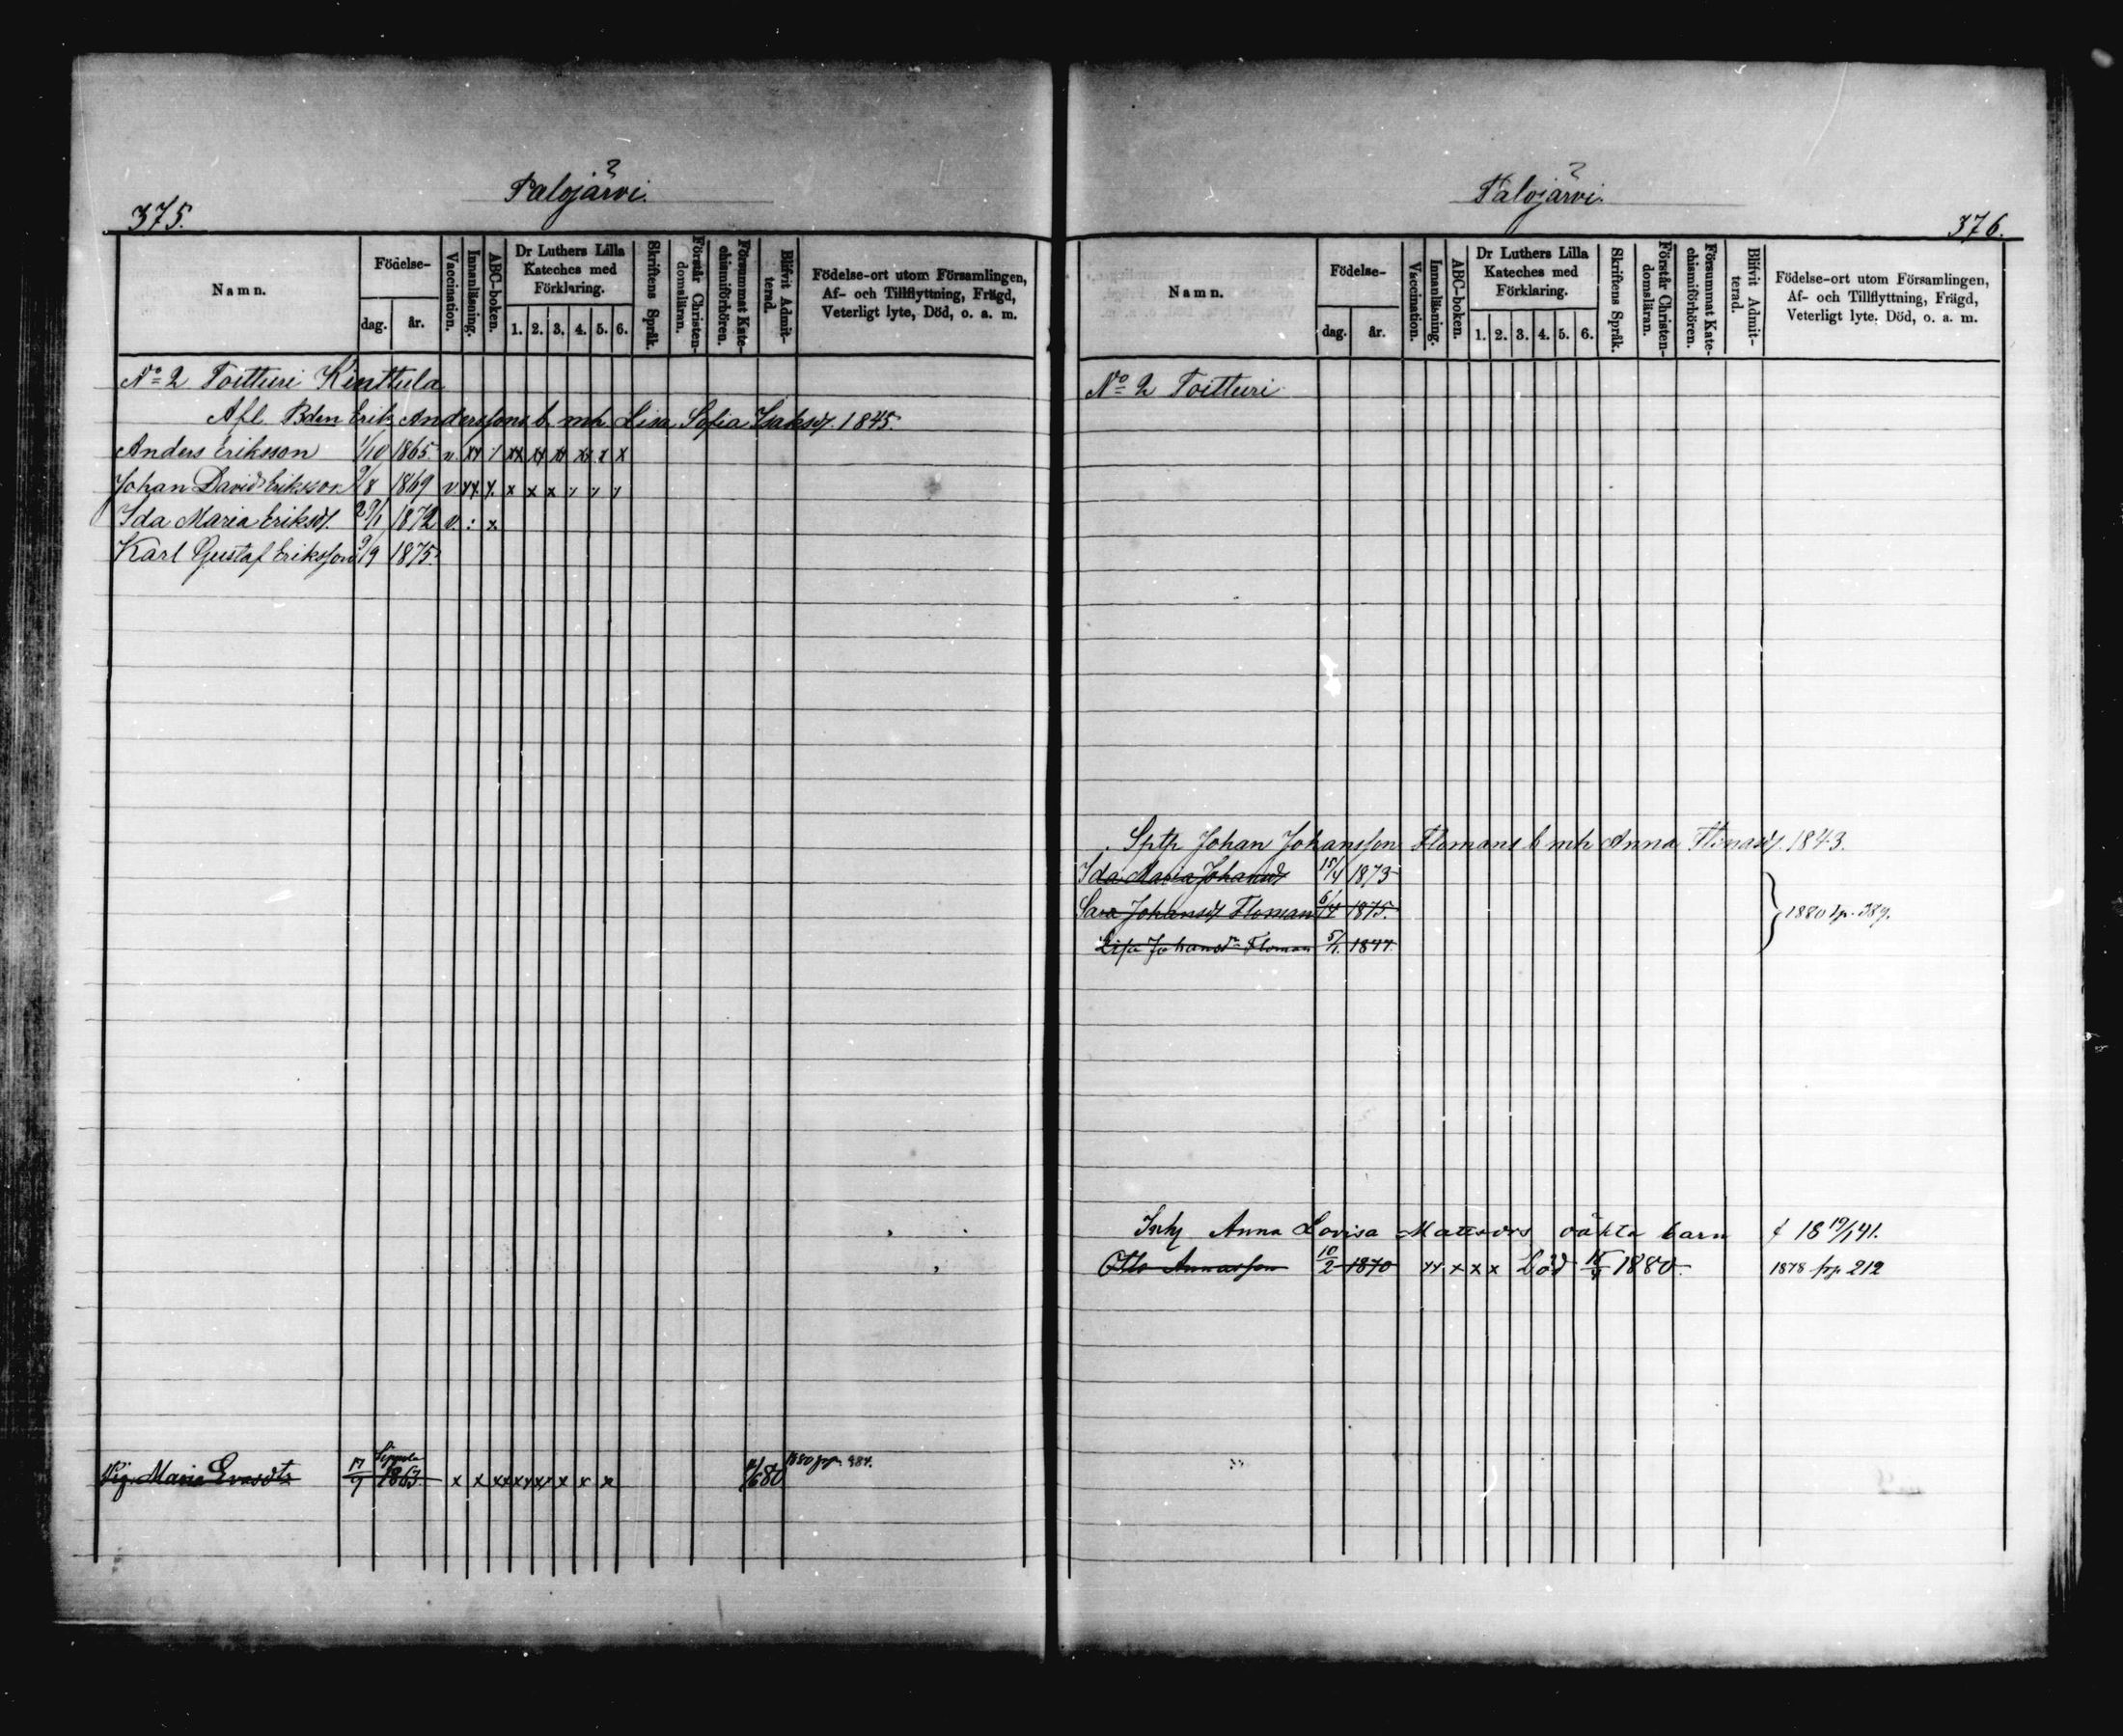 375.
Palojärvi.
Namn.
Födelse-
dag.
år.
Vaccination.
Innanläsning.
ABC-boken.
Dr Luthers Lilla
Kateches med
Förklaring.
1. 2. 3. 4. 5. 6.
Skriftens Språk.
Förstår Christen-
domsläran.
Försummat Kate-
chismiförhören.
Blifvit Admit-
terad.
Födelse-ort utom Församlingen,
Af- och Tillflyttning, Frägd,
Veterligt lyte, Död, o. a. m.
No 2 Toitturi Kinttula
Afl. Bden Erik Anderssons b. mh Lisa Sofia Isaksd. 1845.
Anders Eriksson 1/10 1865. v. xx / xx xx xx xx x x
Johan David Eriksson 9/8 1869 v. xx x. x x x
Ida Maria Eriksd. 29/1 1872 v. : x
Karl Gustaf Eriksson 9/9 1875.
Sippola
1880 pp. 984.
Pig. Maria Evasdtr 17/9 1863. x x xx xx xx x x x /680
Palojärvi.
376.
Namn.
Födelse-
dag.
år.
Vaccination.
Innanläsning.
ABC-boken.
Dr Luthers Lilla
Kateches med
Förklaring.
1. 2. 3. 4. 5. 6.
Skriftens Språk.
Förstår Christen-
domsläran.
Försummat Kate-
chismiförhören.
Blifvit Admit-
terad.
Födelse-ort utom Församlingen,
Af- och Tillflyttning, Frägd,
Veterligt lyte, Död, o. a. m.
No 2 Toitturi
Spth Johan Johansson Flomans b mh Anna 1843.
Ida Maria Johansd 15/4 1873
Sara Johansd. Floman 6/4 1875.
1880 p. 389.
Lisa Johansd Floman 5/1. 1877.
Inhj Anna Lovisa Mattsdrs oäkta barn f 18 19/1 41.
Otto Annasson 10/2 1870 xx x x x Död 15/4 1880. 1878 pp 212